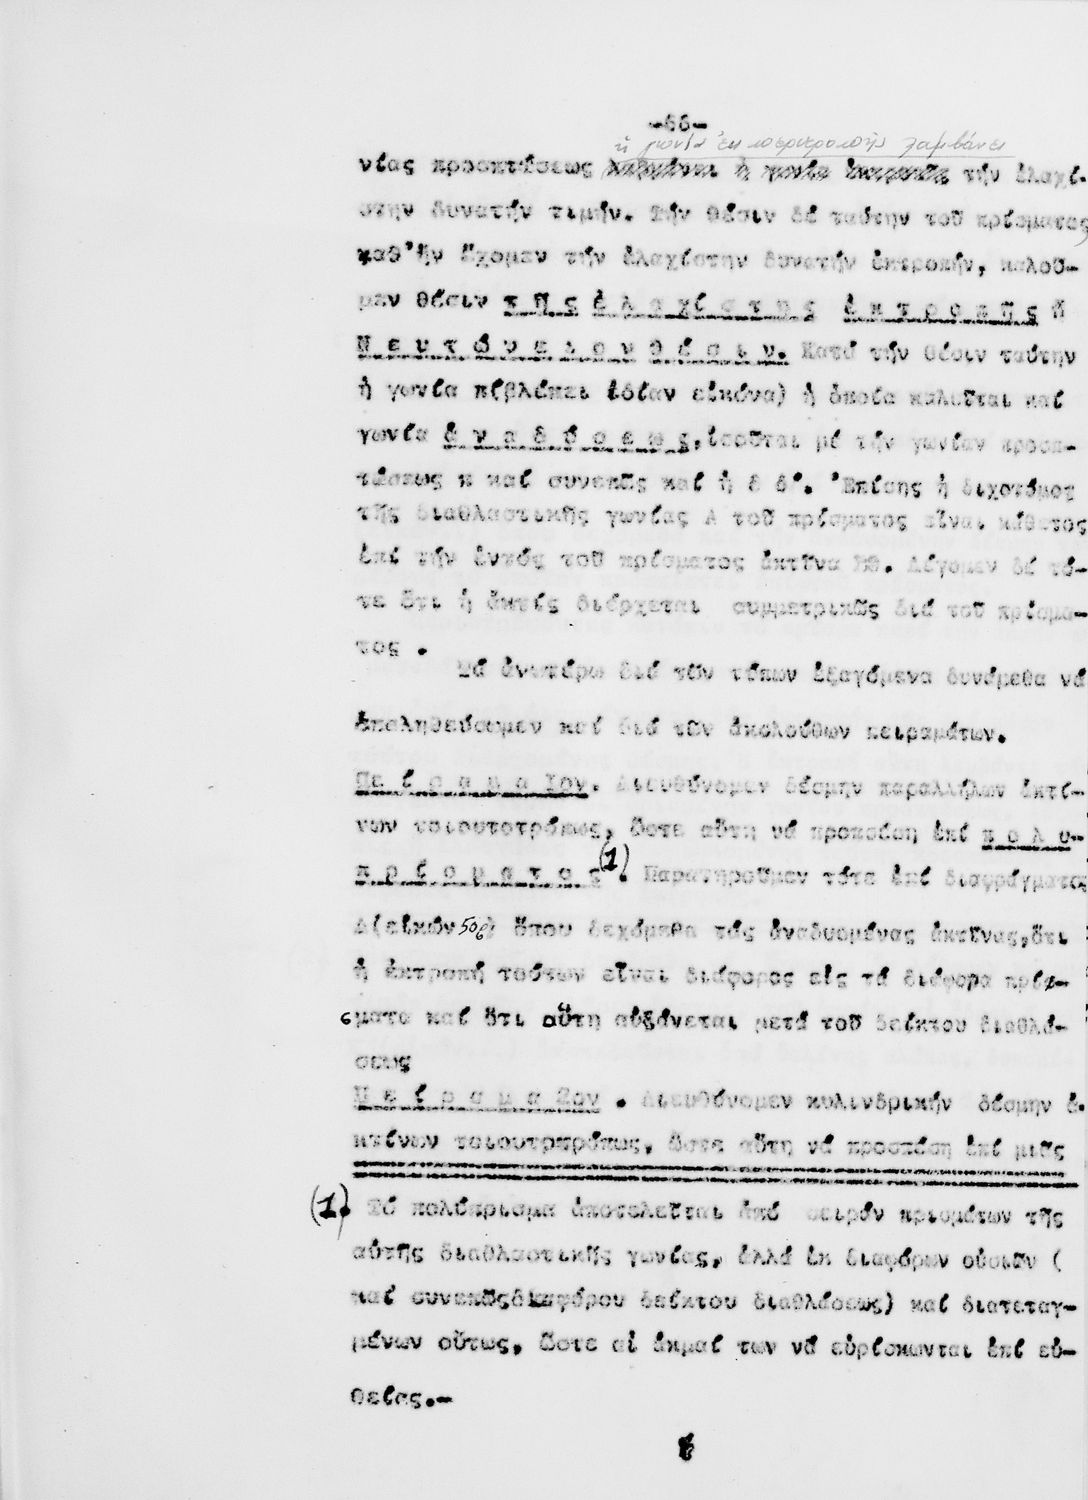 -66-
ἡ γωνία ἐκ λαμβάνει
νίας προσπτώσεως τήν ἐλαχί-
στην δυνατήν τιμήν. Τήν θέσιν δέ ταύτην τοῦ πρίσματος
καθ'ἥν ἔχομεν τήν ἐλαχίστην δυνατήν ἐκτροπήν, καλοῦ-
μεν θέσιν τ ῆ ς ἐ λ α χ ί σ τ η ς ἐ κ τ ρ ο π ῆ ς ἤ
Ν ε υ τ ώ ν ε ι ο ν θ έ σ ι ν. Κατά τήν θέσιν ταύτην
ἡ γωνία π(βλέπει ἰδίαν εἰκόνα) ἡ ὁποία καλεῖται καί
γωνία ἀ ν α δ ύ σ ε ω ς,ἰσοῦται μέ τήν γωνίαν προσπ-
τώσεως π καί συνεπῶς καί ἡ δ δ'. 'Επίσης ἡ διχοτόμος
τῆς διαθλαστικῆς γωνίας Α τοῦ πρίσματος εἶναι κάθετος
ἐπί τήν ἐντός τοῦ πρίσματος ἀκτῖνα ΗΘ. Λέγομεν δέ τό-
τε ὅτι ἡ ἀκτίς διέρχεται συμμετρικῶς διά τοῦ πρίσμα-
τος .
Τά ἀνωτέρω διά τῶν τύπων ἐξαγόμενα δυνάμεθα νά
ἐπαληθεύσωμεν καί διά τῶν ἀκολούθων πειραμάτων.
Πε ί ρ α μ α Ιον. Διευθύνομεν δέσμην παραλλήλων ἀκτί-
νων τοιουτοτρόπως, ὥστε αὕτη νά προσπέση ἐπί π ο λ υ-
π ρ ί σ μ α τ ο ς(1). Παρατηροῦμεν τότε ἐπί διαφράγματος
Δ(εἰκών 50β) ὅπου δεχόμεθα τάς ἀναδυομένας ἀκτῖνας,ὅτι
ἡ ἐκτροπή τούτων εἶναι διάφορος εἰς τά διάφορα πρί-
σματα καί ὅτι αὕτη αὐξάνεται μετά τοῦ δείκτου διαθλά-
σεως
Π ε ί ρ α μ α 2ον . Διευθύνομεν κυλινδρικήν δέσμην ἀ-
κτίνων τοιουτοτρόπως, ὥστε αὕτη νά προσπέση ἐπί μιᾶς
(1). Τό πολύπρισμα ἀποτελεῖται ἀπό σειράν πρισμάτων τῆς
αὐτῆς διαθλαστικῆς γωνίας, ἀλλά ἐκ διαφόρων οὐσιῶν (
καί συνεπῶςδιαφόρου δείκτου διαθλάσεως) καί διατεταγ-
μένων οὕτως, ὥστε αἱ ἀκμαί των νά εὑρίσκωνται ἐπί εὐ-
θείας.-